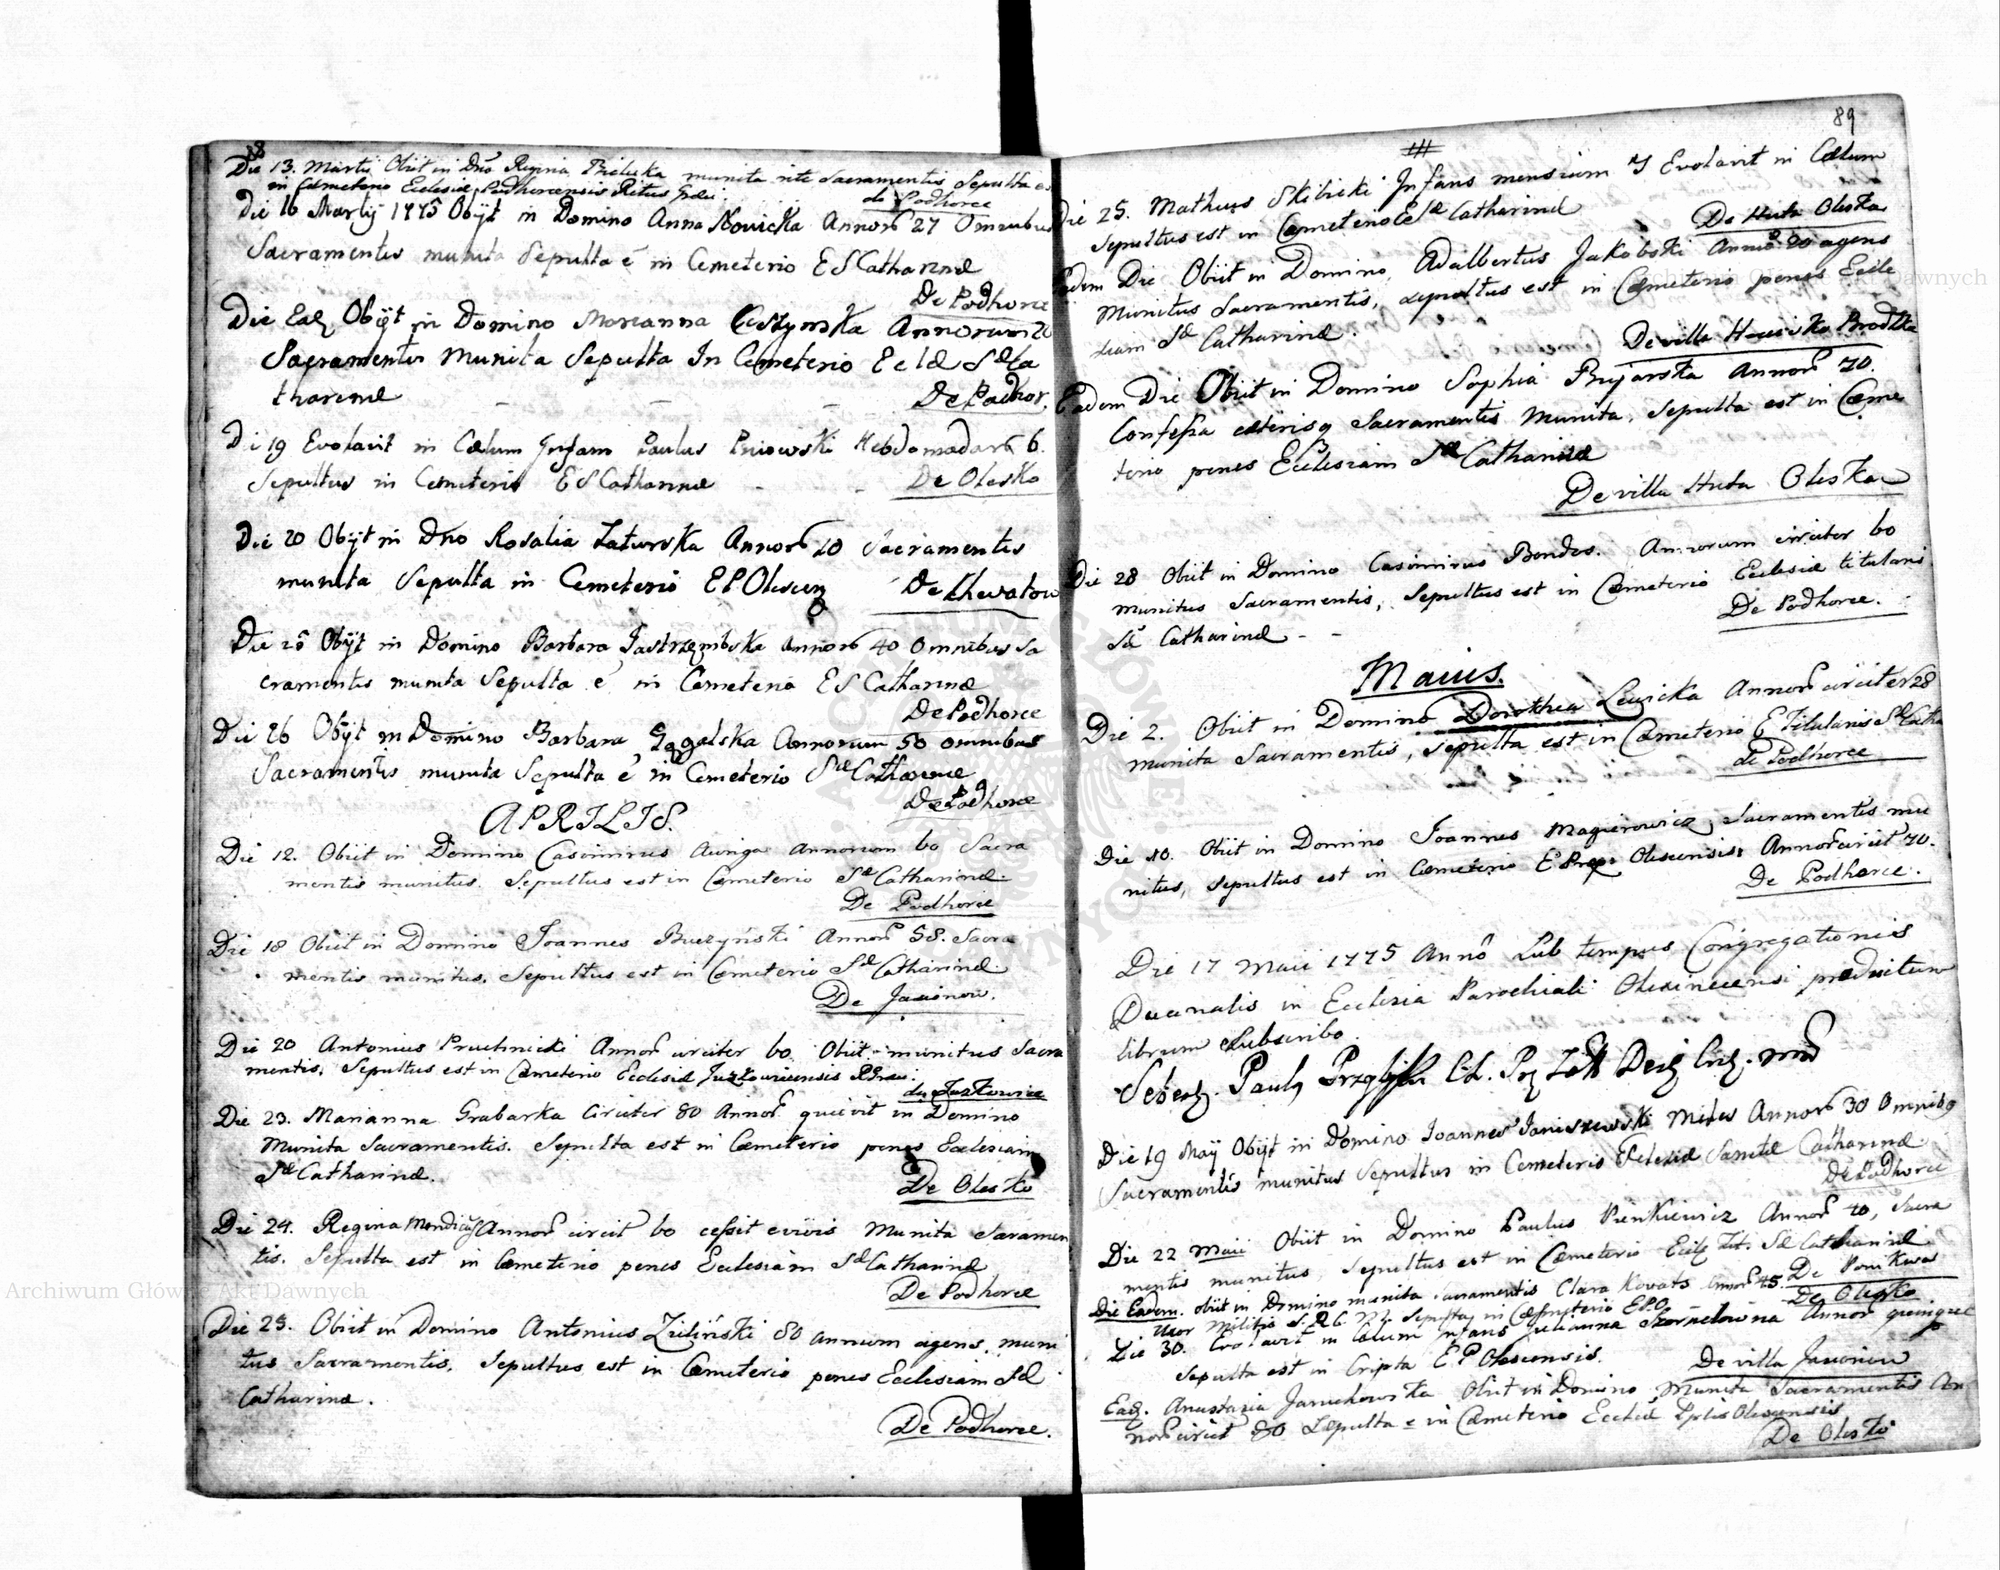 Die 13. Martii Obiit in Dno Regina Bielicka munita rite Sacramentis Sepulta
in Cemeterio Ecclesiæ Podhorcensis Ritus Græci. de Podhorce
Die 16 Martij 1775 Obijt in Domino Anna Nowicka Annor 27 Omnibus
Sacramentis munita Sepulta ē in Cemeterio E S Catharinæ
De Podhorce
Die Ead Obijt in Domino Marianna Annorum 20
Sacramentis Munita Sepulta In Cemeterio Eclæ Sæ Ca
tharinæ De Podhor.
Di 19 Evolavit in Cælum Infans Paulus Pniowski Hebdomadar 6.
Sepultus in Cemeterio E S Catharinæ De Olesko
Die 20 Obijt in Dno Rosalia Zaturska Annor 20 Sacramentis
munita Sepulta in Cemeterio E P Olescen De Chwatow
Die 25 Obijt in Domino Barbara Jastrzembska Annor 40 Omnibus Sa
cramentis munita Sepulta ē in Cemeterio E S Catharinæ
De Podhorce
Die 26 Obijt in Domino Barbara Gągalska Annorum 50 omnibus
Sacramentis munita Sepulta ē in Cemeterio Sæ Catharinæ
De Podhorce
APRILIS.
Die 12. Obiit in Domino Casimirus Auriga Annorum 60 Sacra
mentis munitus. Sepultus est in Cæmeterio Sæ Catharinæ.
De Podhorce
Die 18 Obiit in Domino Joannes Buczyński Annor 58. Sacra
mentis munitus. Sepultus est in Cæmeterio Sæ Catharinæ.
De Jasionow.
Die 20 Antonius Pruchnicki Annor circiter 60 Obiit munitus Sacra
mentis. Sepultus est in Cæmeterio Ecclesiæ Juszkowicensis R Græci.
de Juszkowice
Die 23. Marianna Grabarka Circiter 80 Annor quievit in Domino
Munita Sacramentis. Sepulta est in Cæmeterio penes Ecclesiam
Sæ Catharinæ.
De Olesko
Die 24. Regina Mendica Annor circit 60 cessit e vivis Munita Sacramen
tis. Sepulta est in Cæmeterio penes Ecclesiam Sæ Catharinæ
De Podhorce
Die 25. Obiit in Domino Antonius Zieliński 80 annum agens. muni
tus Sacramentis. Sepultus est in Cæmeterio penes Ecclesiam Sæ
Catharinæ.
De Podhorce.
89
Die 25. Matheus Skibicki Infans mensium 7 Evolavit in Cælum
Sepultus est in Cæmeterio E Sæ Catharinæ De Huta Oleska
Eadem Die Obiit in Domino Adalbertus Jakobski Annum 20 agens
Munitus Sacramentis, sepultus est in Cæmeterio penes Eccle
siam Sæ Catharinæ.
De villa
Eadem Die Obiit in Domino Sophia Annor 70.
Confessa cæterisq Sacramentis Munita, Sepulta est in Cæme
terio penes Ecclesiam Sæ Catharinæ
De villa Huta Oleska
Die 28 Obiit in Domino Casimirus Bondos. Annorum circiter 60
munitus Sacramentis, Sepultus est in Cæmeterio Ecclesiæ titularis
Sæ Catharinæ - - De Podhorce.
Maius.
Die 2. Obiit in Domino Dorothea Lewicka Annor circiter 28
munita Sacramentis, sepulta est in Cæmeterio E Titularis Sæ Catha
de Podhorce
Die 10. Obiit in Domino Joannes Magierowicz, Sacramentis mu
nitus, sepultus est in Cæmeterio E Olescensis Annor circit 70.
De Podhorce.
Die 17 Maii 1775 Anno Sub tempus Congregationis
Decanalis in Ecclesia Parochiali Olescinensi productum
librum Subscribo.
Die 19 Maij Obijt in Domino Joannes Janiszewski Miles Annor 30 Omnibq
Sacramentis munitus Sepultus in Cemeterio Eclesiæ Sanctæ Catharinæ
De Podhorce
Die 22 Maii Obiit in Domino Paulus Pienkiewicz Annor 40, Sacra
mentis munitus, sepultus est in Cæmeterio Eccl Tit. Sæ Catharinæ.
De Ponikwa
Die Eadem. obiit in Domino munita Sacramentis Clara Kowats Annor 45. De Olesko
Uxor Militis Sepulta in Cæmeterio E P O.
Die 30. Evolavit in Cælum Infans Julianna Annor quinque
Sepulta est in Cripta E P Olescensis. De villa Jasionow
Ead. Anastazia Januchowska Obiit in Domino Munita Sacramentis An
nor circit 80 Sepulta e in Cæmeterio Ecclæ Pplis Olescensis
De Olesko
Archiwum Główne Akt Dawnych
Archiwum Główne Akt Dawnych